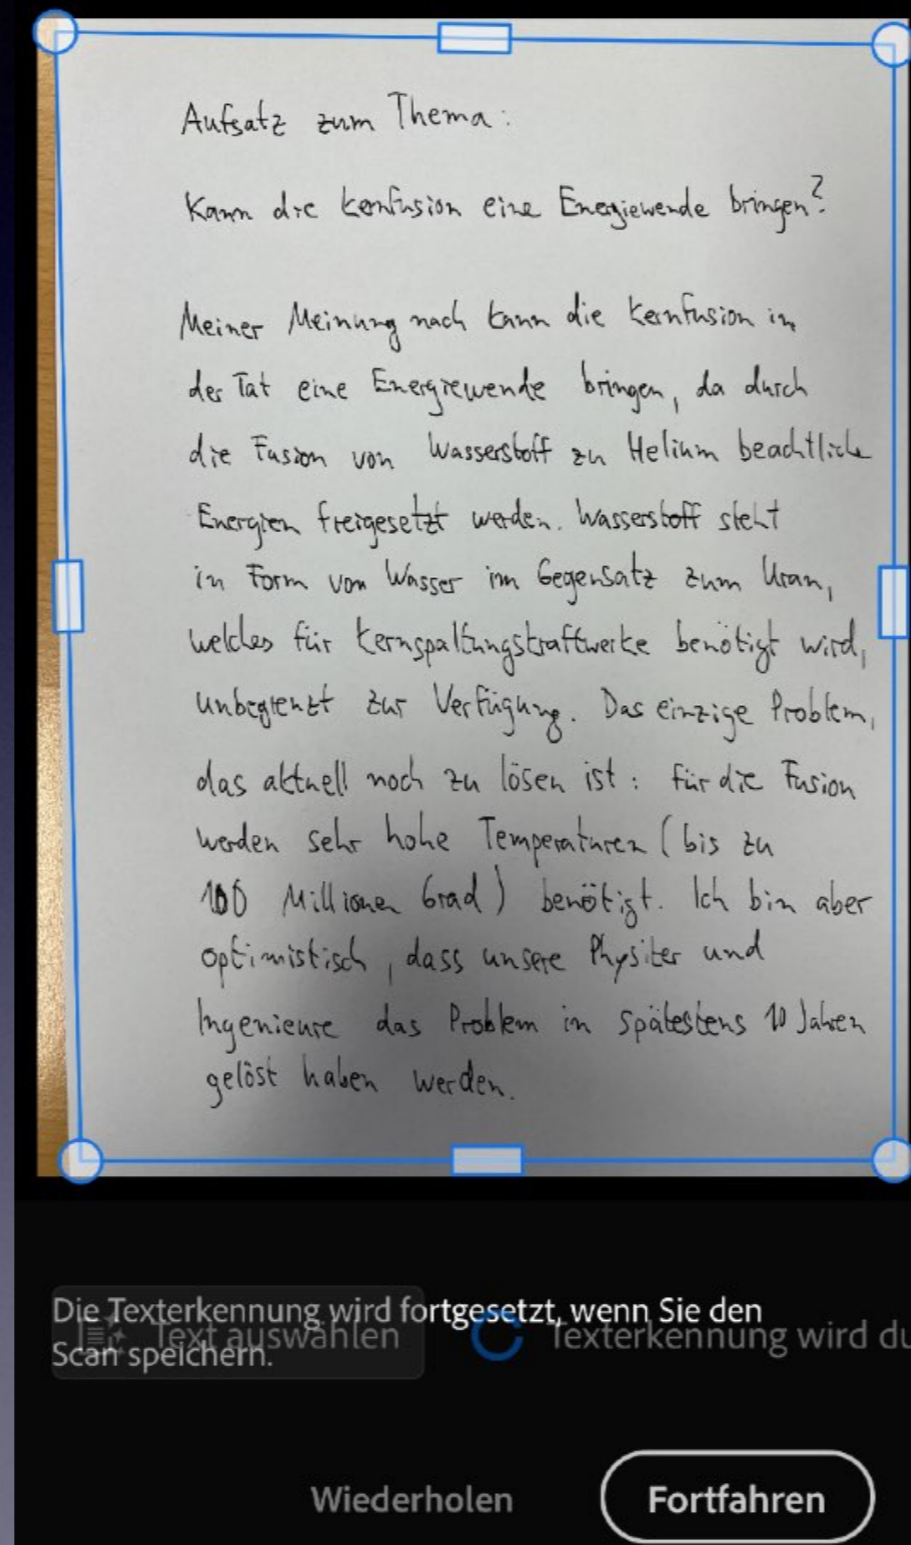 Aufsatz zum Thema:
Kann die Kernfusion eine Energiewende bringen?
Meiner Meinung nach kann die Kernfusion in
der Tat eine Energiewende bringen, da durch
die Fusion von Wasserstoff zu Helium beachtliche
Energien freigesetzt werden. Wasserstoff steht
in Form von Wasser im Gegensatz zum Uran,
welches für Kernspaltungskraftwerke benötigt wird,
unbegrenzt zur Verfügung. Das einzige Problem,
das aktuell noch zu lösen ist: für die Fusion
werden sehr hohe Temperaturen (bis zu
100 Millionen Grad) benötigt. Ich bin aber
optimistisch, dass unsere Physiker und
Ingenieure das Problem in spätestens 10 Jahren
gelöst haben werden.
Die Texterkennung wird fortgesetzt, wenn Sie den
Scan speichern.
Text auswählen
Texterkennung wird du
Wiederholen
Fortfahren